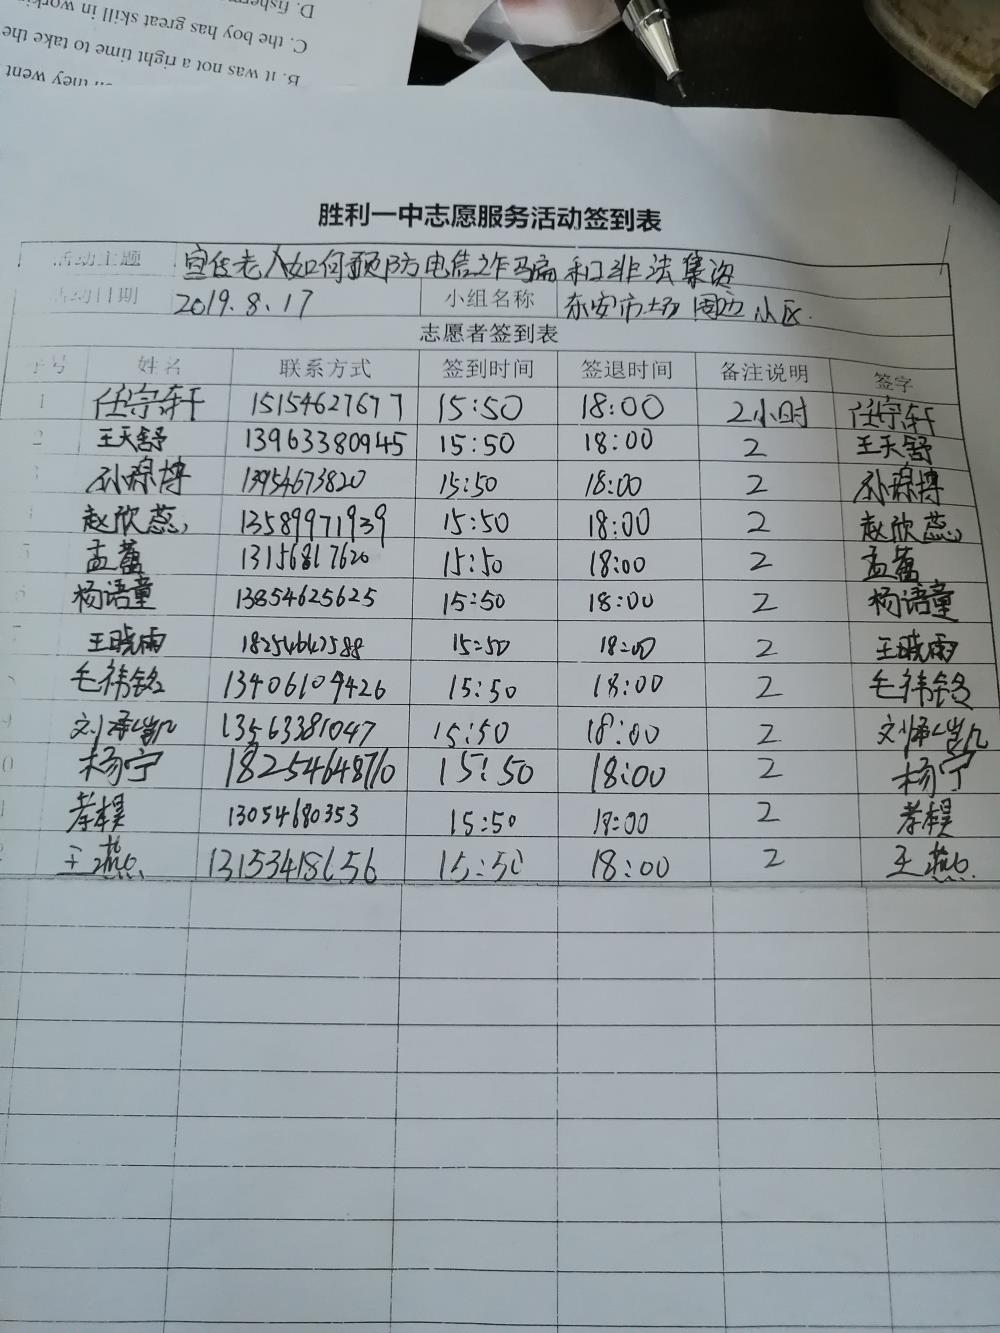 D. fisherm
C. the boy has great skill in workin
B. it was not a right time to take the
they went
胜利一中志愿服务活动签到表
活动主题 宣传老人如何预防电信诈骗和非法集资
活动日期 2019.8.17 小组名称 东安市场周边小区.
志愿者签到表
序号 姓名 联系方式 签到时间 签退时间 备注说明 签字
1 任宗轩 15154627677 15:50 18:00 2小时 任宗轩
2 王天舒 13963380945 15:50 18:00 2 王天舒
3 孙琮博 13954673820 15:50 18:00 2 孙琮博
4 赵欣蕊 13589971939 15:50 18:00 2 赵欣蕊
5 孟蕾 13156817620 15:50 18:00 2 孟蕾
6 杨语童 13854625625 15:50 18:00 2 杨语童
7 王晓雨 18254647588 15:50 18:00 2 王晓雨
毛祎铭 13406109426 15:50 18:00 2 毛祎铭
9 刘泽凯 13563381047 15:50 18:00 2 刘泽凯
0 杨宁 18254648710 15:50 18:00 2 杨宁
13054680353 15:50 18:00 2
2 王燕 13153418656 15:50 18:00 2 王燕